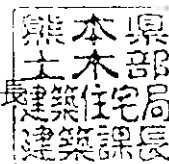 熊本県
土木部
長
建築住宅局
建築課長